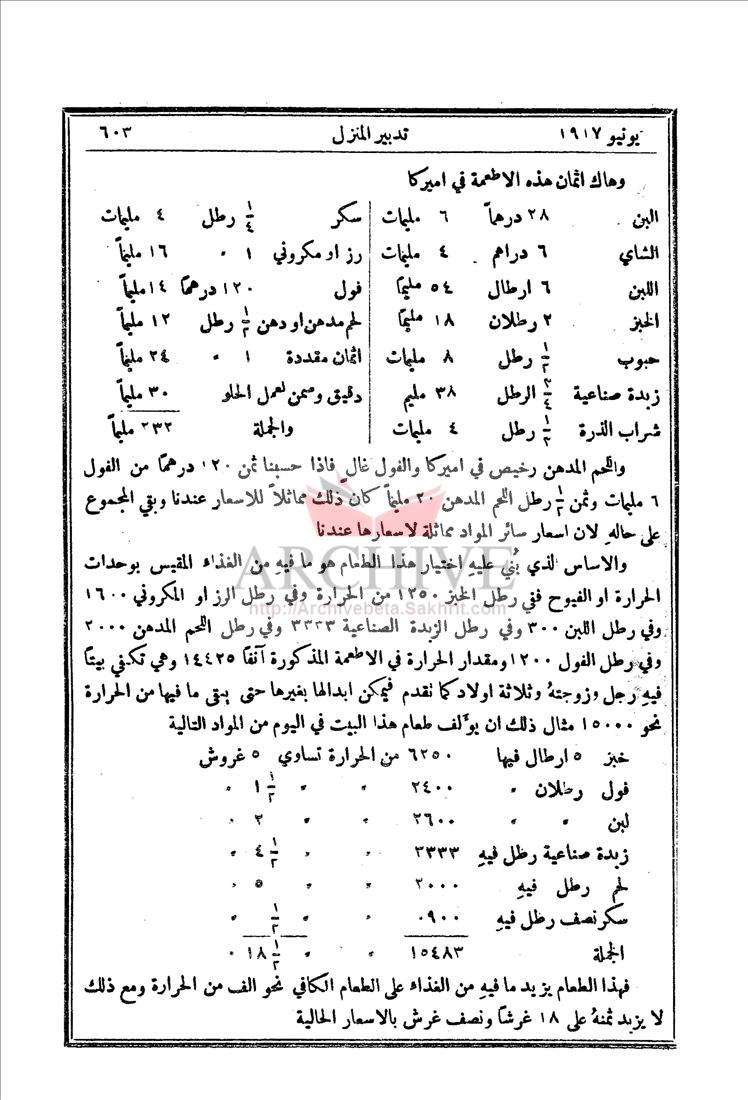 يونيو ١٩١٧ تدبير المنزل ٦٠٣
وهاك اثمان هذه الاطعمة في اميركا
البن ٢٨ درهماً ٦ مليمات
الشاي ٦ دراهم ٤ مليمات
اللبن ٦ ارطال ٥٤ مليماً
الخبز ٢ رطلان ١٨ مليماً
حبوب ١/٢ رطل ٨ مليمات
زبدة صناعية ٣/٤ الرطل ٣٨ مليم
شراب الذرة ١/٢ رطل ٤ مليمات
سكر ١/٤ رطل ٤ مليمات
رز او مكروني ١ " ١٦ مليماً
فول ١٢٠ درهماً ١٤ مليماً
لحم مدهن او دهن ١/٢ رطل ١٢ مليماً
اثمان مقددة ١ " ٢٤ مليماً
دقيق وسمن لعمل الحلو ٣٠ مليماً
والجملة ٢٣٢ مليماً
واللحم المدهن رخيص في اميركا والفول غالٍ فاذا حسبنا ثمن ١٢٠ درهماً من الفول
٦ مليمات وثمن ١/٢ رطل اللحم المدهن ٢٠ مليماً كان ذلك مماثلاً للاسعار عندنا وبقي المجموع
على حالهِ لان اسعار سائر المواد مماثلة لاسعارها عندنا
والاساس الذي بُني عليهِ اختيار هذا الطعام هو ما فيهِ من الغذاء المقيس بوحدات
الحرارة او الفيوح ففي رطل الخبز ١٢٥٠ من الحرارة وفي رطل الرز او المكروني ١٦٠٠
وفي رطل اللبن ٣٠٠ وفي رطل الزبدة الصناعية ٣٣٣٣ وفي رطل اللحم المدهن ٢٠٠٠
وفي رطل الفول ١٢٠٠ ومقدار الحرارة في الاطعمة المذكورة آنفاً ١٤٤٢٥ وهي تكفي بيتاً
فيهِ رجل وزوجتهُ وثلاثة اولاد كما تقدم فيمكن ابدالها بغيرها حتى يبقى ما فيها من الحرارة
نحو ١٥٠٠٠ مثال ذلك ان يؤلف طعام هذا البيت في اليوم من المواد التالية
خبز ٥ ارطال فيها ٦٢٥٠ من الحرارة تساوي ٥ غروش
فول رطلان " ٢٤٠٠ " " ١ ١/٢ "
لبن " " ٢٦٠٠ " " ٢ "
زبدة صناعية رطل فيهِ ٣٣٣٣ " " ٤ ١/٢ "
لحم رطل فيهِ ٢٠٠٠ " " ٥ "
سكر نصف رطل فيهِ ٠٩٠٠ " " ١/٢ "
الجملة ١٥٤٨٣ " " ١٨ ١/٢ "
فهذا الطعام يزيد ما فيهِ من الغذاء على الطعام الكافي نحو الف من الحرارة ومع ذلك
لا يزيد ثمنهُ على ١٨ غرشاً ونصف غرش بالاسعار الحالية
ARCHIVE
http://Archivebeta.Sakhrit.com